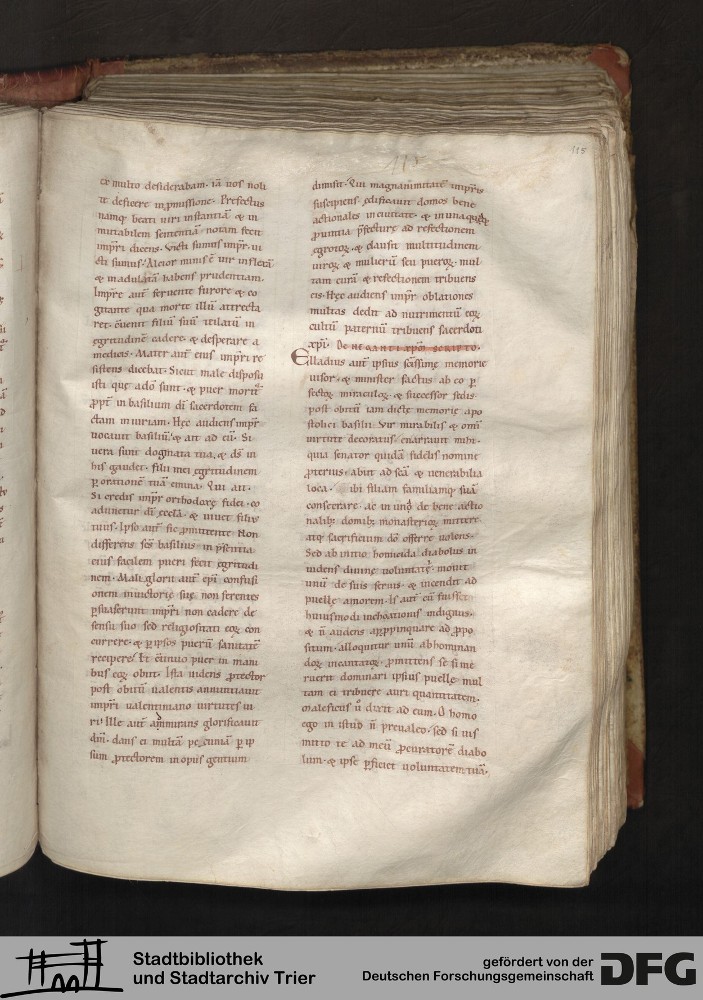 115
ex multo desiderabam. iā uos noli
te deficere inpmissione. Prefectus
namq; beati uiri instantiā & in
mutabilem sententiā notam fecit
impri dicens. Victi sumus impr. ui
cti sumus. Alcior minis ē uir infletā
& madulatā habens prudentiam.
Impre aut feruente furore & co
gitante qua morte illū attrecta
ret. ōuenit filiū suū ualatū in
egritudinē cadere. & desperare a
medicis. Mater aut eius impri re
sistens dicebat. Sicut male disposu
isti que adō sunt. & puer mortē
ppt in basilium dī sacerdotem fa
ctam iniuriam. Hęc audiens impr
uocauit basiliū. & ait ad eū. Si
uera sunt dogmata tua. & dś in
his gaudet. filii mei egritudinem
p orationē tuā emina. Qui ait.
Si credis impr orthodoxę fidei. co
adunetur dī ęcclā. & uiuet filius
tuus. Ipso aut sic pmittente Non
differens scś basilius in psentia
eius facilem pueri fecit egritudi
nem. Mali glorii aut epi confusi
onem inuictorię suę non ferentes
psuaserunt impri non cadere de
sensu suo sed religiositati eoꝝ con
currere. & p ipsos puerū sanitatē
recipere. Et ōtinuo puer in mani
bus eoꝝ obiit. Ista uidens ptector
post obitū ualentis annuntiauit
impri ualentiniano uirtutes ui
ri. Ille aut admirans glorificauit
dm̄. dans ei multā pecuniā p ip
sum ptectorem in opus gentium
115
dimisit. Qui magnanimitatē impris
suscipiens. edificauit domos bene
actionales in ciuitate. & in unaquaq;
puintia pfecturę ad refectionem
ęgrotoꝝ. & clausit multitudinem
uiroꝝ & mulierū seu pueroꝝ. mul
tam curā & refectionem tribuens
eis. Hęc audiens impr oblationes
multas dedit ad nutrimentū eoꝝ
cultū paternū tribuens sacerdoti
xpi. DE NEGANTI XPM SCRIPTO.
Elladius aut ipsius scissime memorie
uisor. & minister factus ab eo p
fectoꝝ miraculoꝝ. & successor sedis
post obitū iam dicte memorie apo
stolici basilii. Vir mirabilis & omi
uirtute decoratus enarrauit mihi.
quia senator quidā fidelis nomine
pterius. abiit ad scā & uenerabilia
loca. ibi filiam familiamq; suā
consecrare. ac in unū de bene actio
nalib; domib; monasterioꝝ mittere
atq; sacrificium dō offerre uolens.
Sed ab initio homicida diabolus in
uidens diuinę uoluntatę. mouit
unū de suis seruis. & incendit ad
puellę amorem. Is aut cū fuisset
huiusmodi inchoationis indignus.
& n̄ audens appropinquare ad ppo
situm. alloquitur unū abhominan
doꝝ incantatoꝝ. pmittens se si me
ruerit dominari ipsius puellę mul
tam ei tribuere auri quantitatem.
Maleficus ů dixit ad eum. O homo
ego in istud n̄ preualeo. sed si uis
mitto te ad meū pcuratorē diabo
lum. & ipse pficiet uoluntatem tuā.
Stadtbibliothek
und Stadtarchiv Trier
gefördert von der
Deutschen Forschungsgemeinschaft
DFG